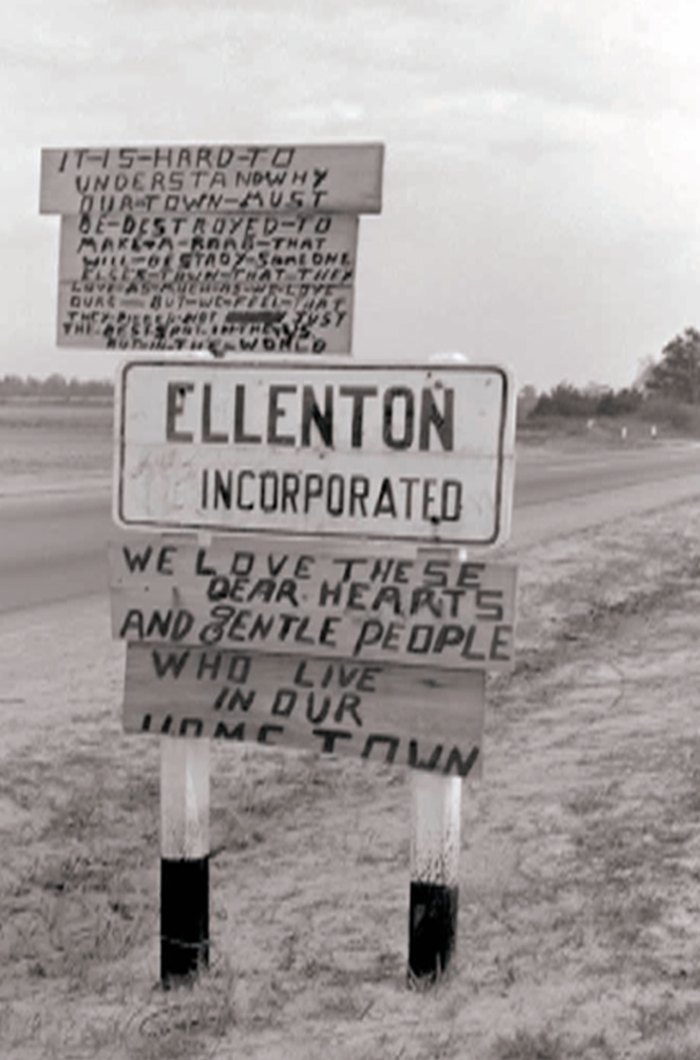 IT-IS-HARD-TO
UNDERSTANDWHY
OUR-TOWN-MUST
BE-DESTROYED-TO
MAKE-A-BOMB-THAT
WILL-DESTROY-SOMEONE
ELSES-TOWN-THAT-THEY
LOVE-AS-MUCH-AS-WE-LOVE
OURS-BUT-WE-FEEL-THAT
THEY-PICKED-NOT JUST
THE-BEST-SPOT-IN-THE-US
BUT-IN-THE-WORLD
ELLENTON
INCORPORATED
WE LOVE THESE
DEAR HEARTS
AND GENTLE PEOPLE
WHO LIVE
IN OUR
HOME TOWN